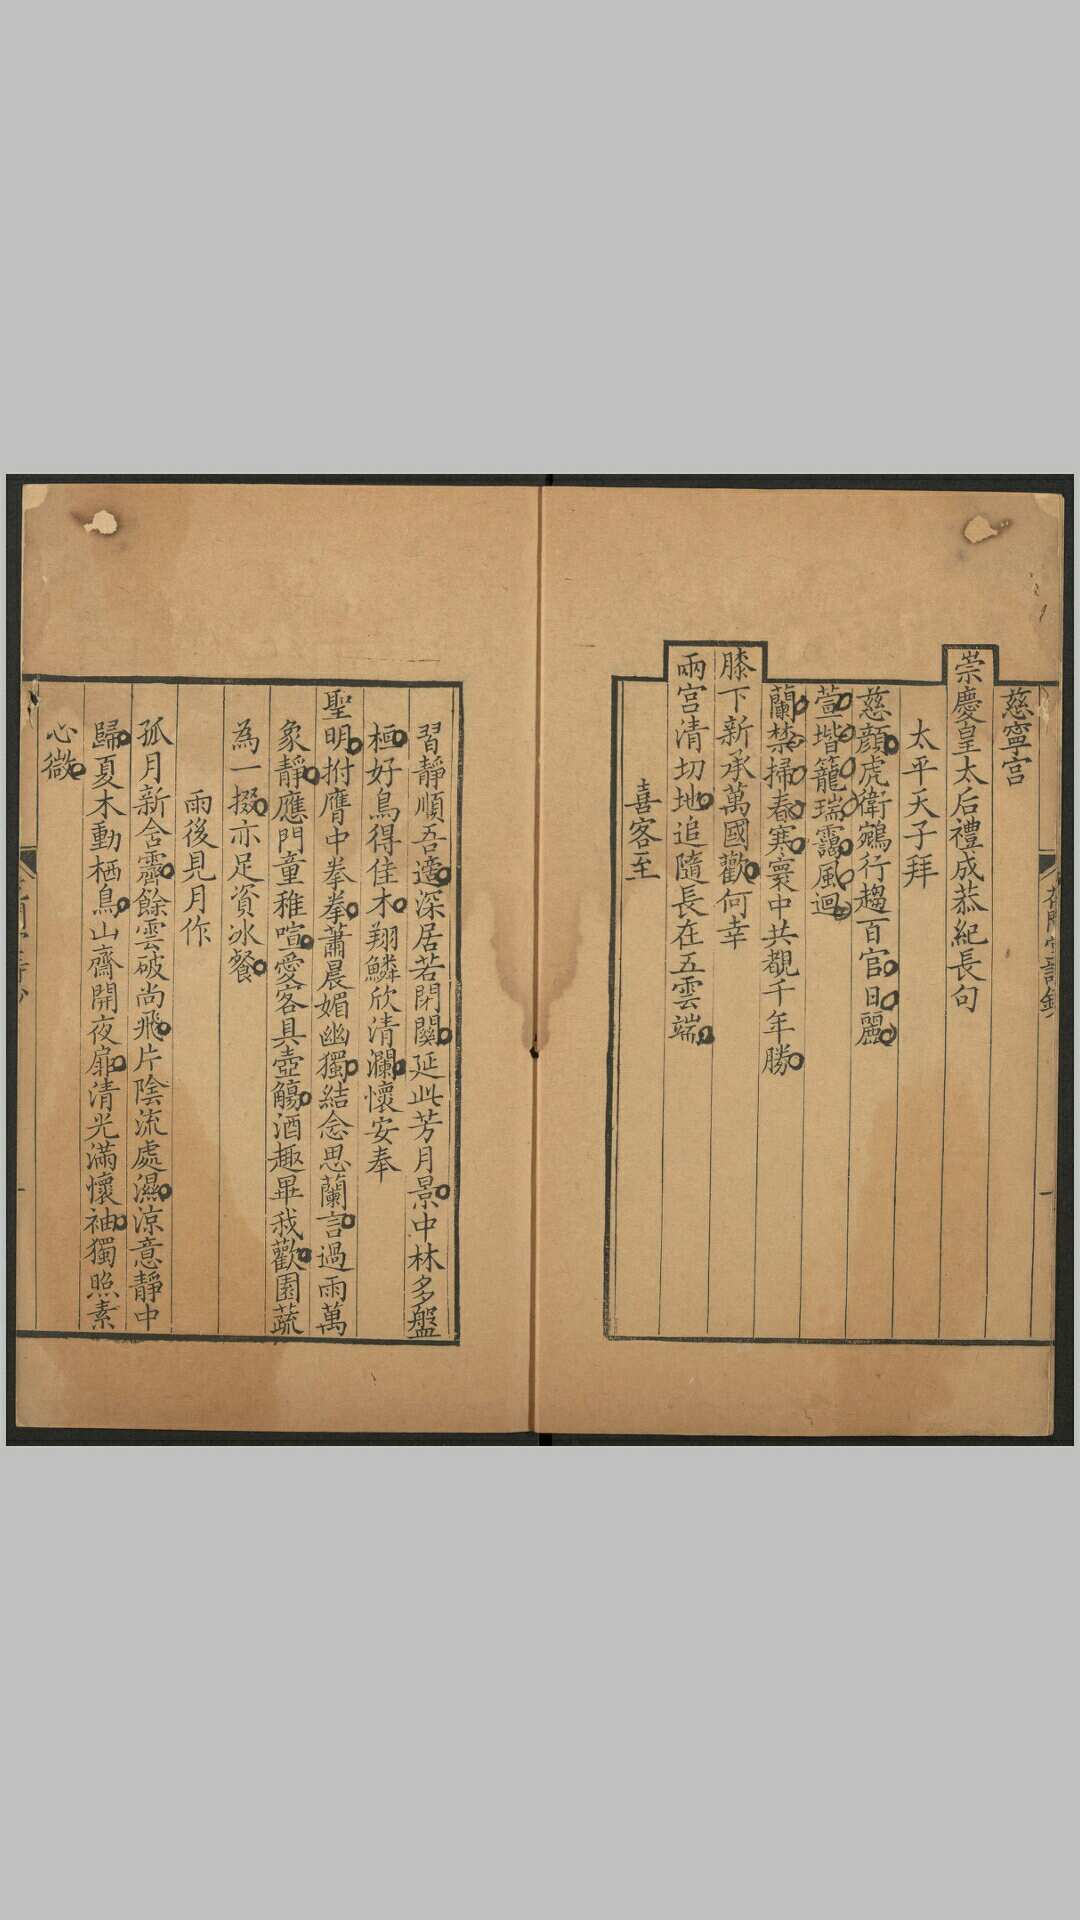 慈寧宮
崇慶皇太后禮成恭紀長句
太平天子拜
慈顏虎衛鵷行趨百官日麗
萱堦籠瑞靄風迴
蘭禁掃春寒寰中共覩千年勝
膝下新承萬國歡何幸
兩宮清切地追隨長在五雲端
喜客至
習靜順吾適深居若閉關延此芳月景中林多盤
桓好鳥得佳木翔鱗欣清瀾懷安奉
聖明拊膺中拳拳蕭晨媚幽獨結念思蘭言過雨萬
象靜應門童稚喧愛客具壺觴酒趣畢我歡園蔬
為一掇亦足資冰餐
雨後見月作
孤月新舍霽餘雲破尚飛片陰流處濕涼意靜中
歸夏木動栖鳥山齋開夜扉清光滿懷袖獨照素
心微